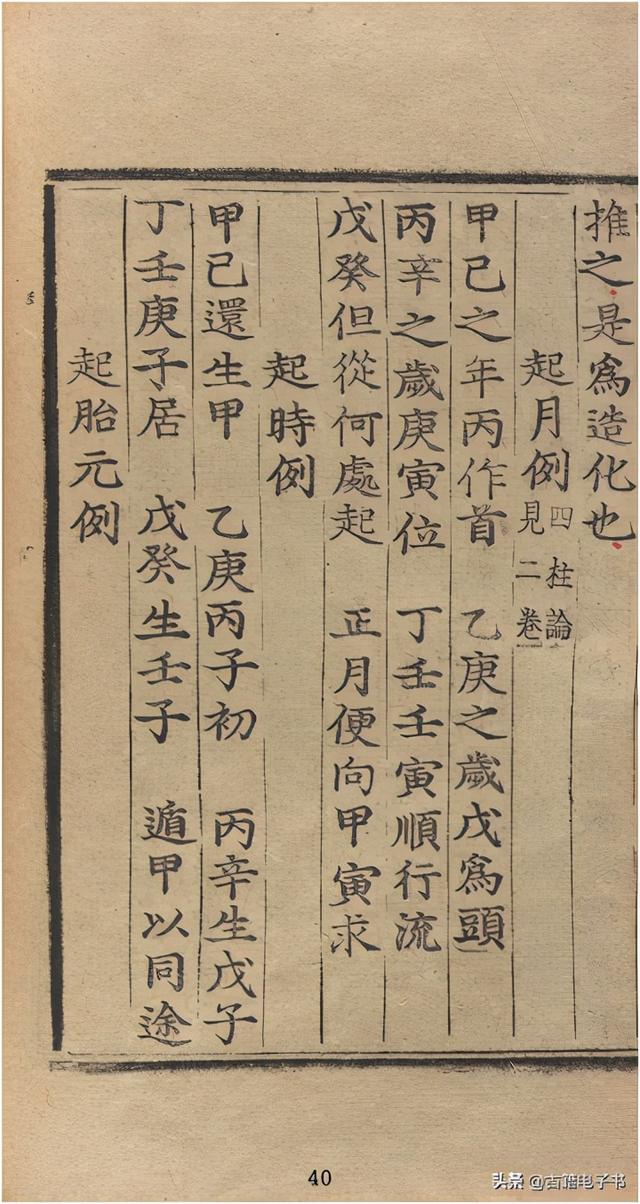 推之是爲造化也
起月例 四柱論見二卷
甲己之年丙作首 乙庚之歲戊爲頭
丙辛之歲庚寅位 丁壬壬寅順行流
戊癸但從何處起 正月便向甲寅求
起時例
甲己還生甲 乙庚丙子初 丙辛生戊子
丁壬庚子居 戊癸生壬子 遁甲以同途
起胎元例
40
头条@古籍电子书